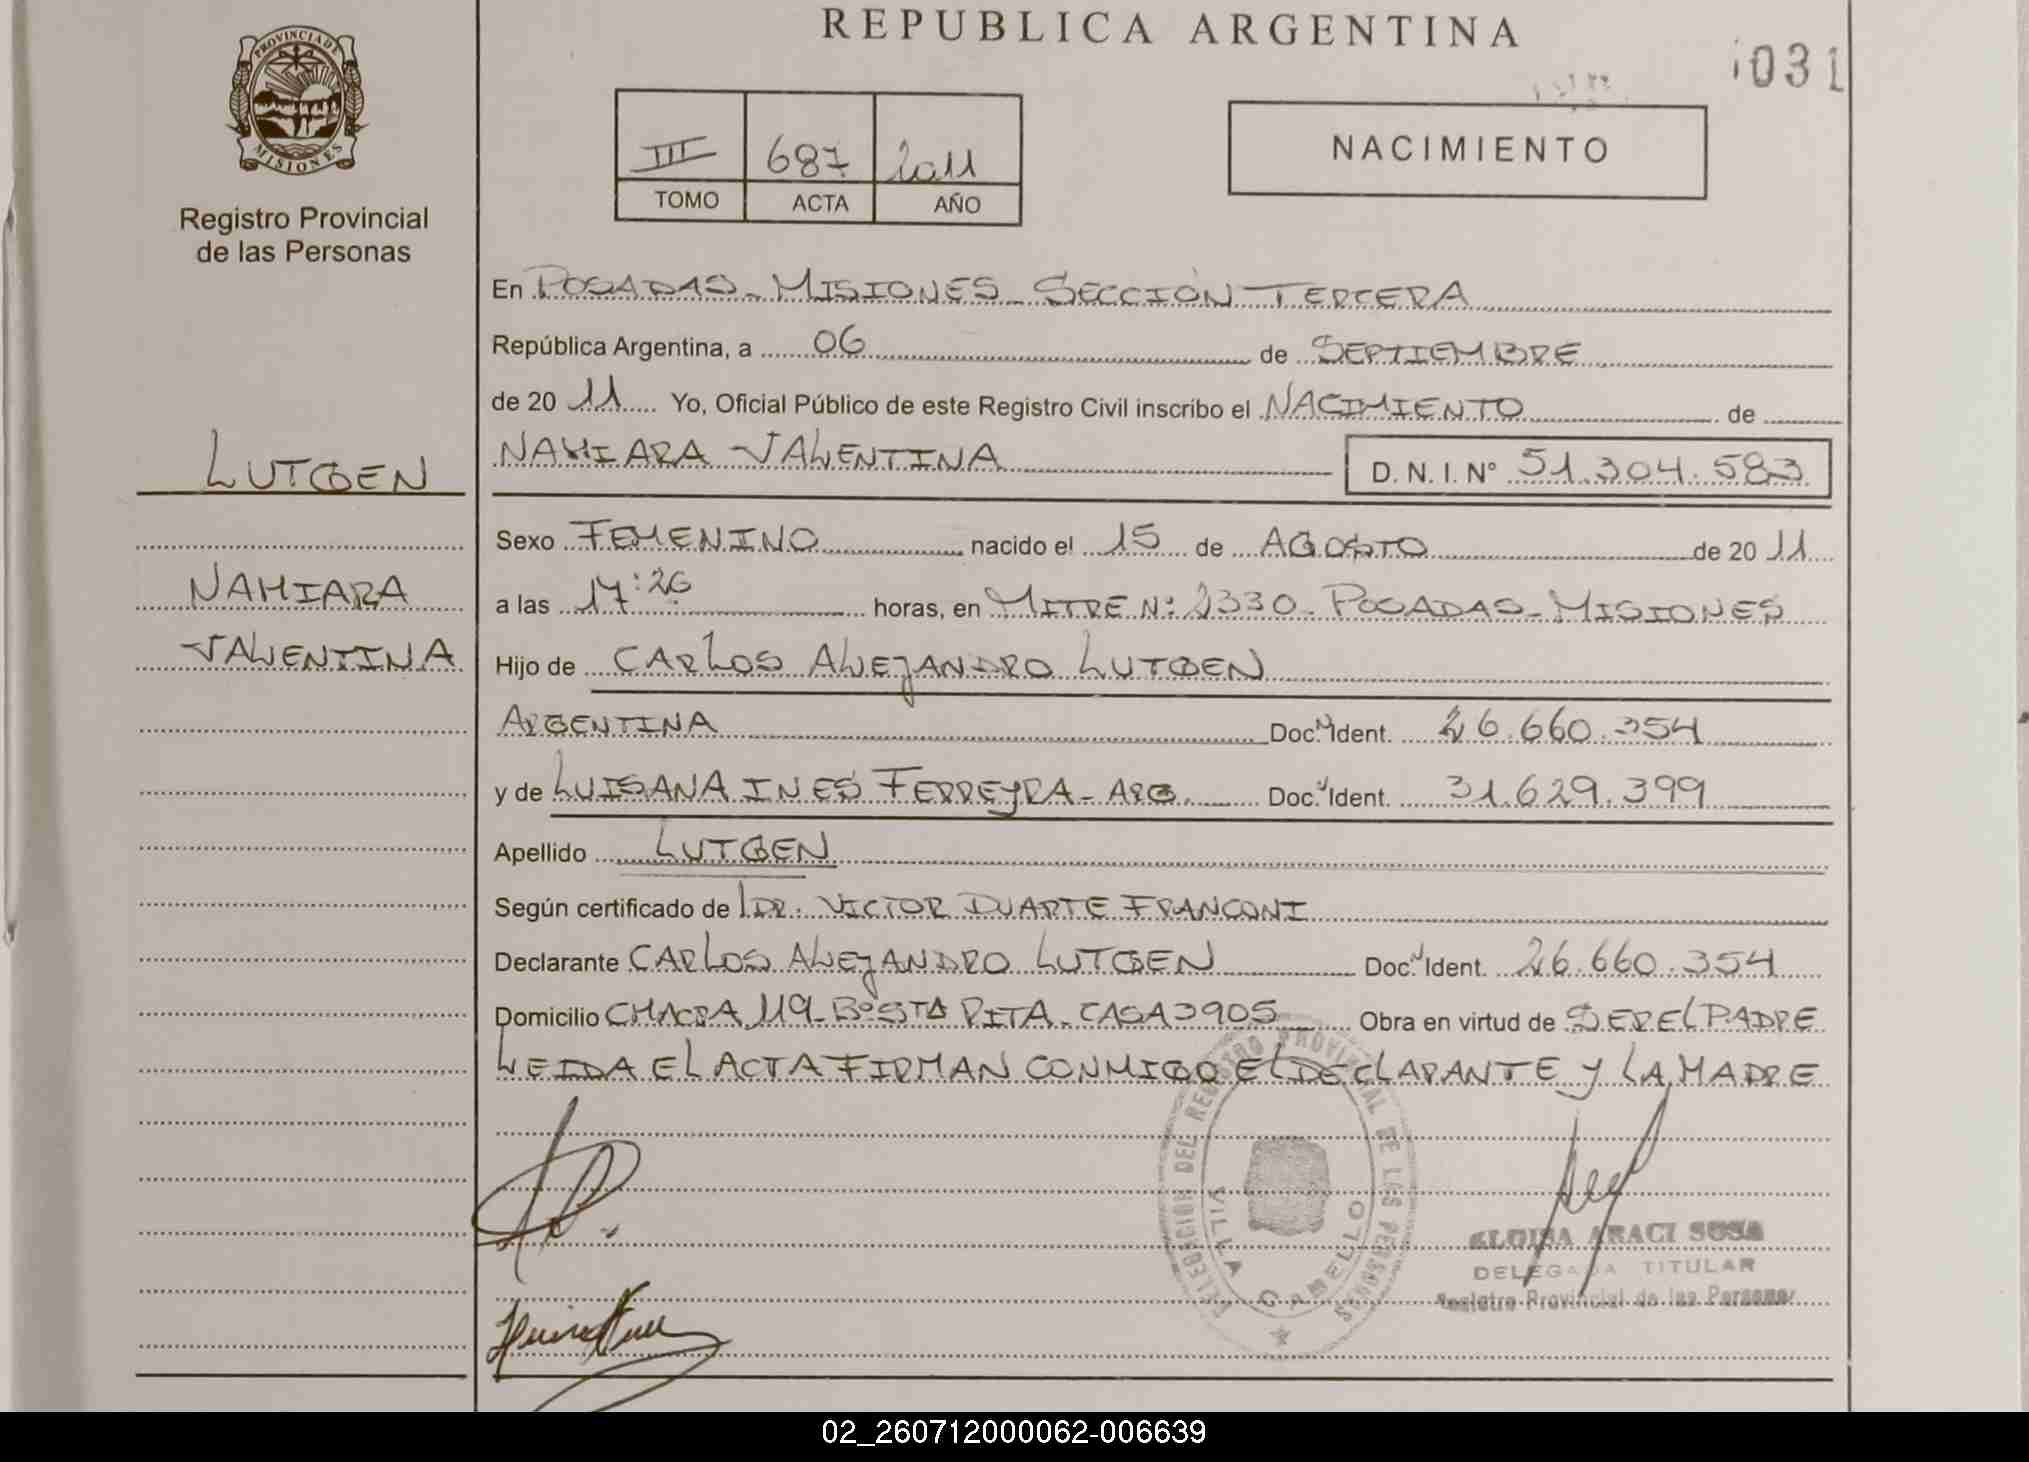 REPUBLICA ARGENTINA
031
PROVINCIA DE MISIONES
Registro Provincial
de las Personas
III 687 2011
TOMO ACTA AÑO
NACIMIENTO
En POSADAS - MISIONES - SECCIÓN TERCERA
República Argentina, a 06 de SEPTIEMBRE
de 20 11 Yo, Oficial Público de este Registro Civil inscribo el NACIMIENTO de
NAHIARA VALENTINA D. N. I. N° 51.304.583
LUTGEN
Sexo FEMENINO nacido el 15 de AGOSTO de 20 11
NAHIARA
a las 17:26 horas, en MITRE N: 2330 - POSADAS - MISIONES
VALENTINA
Hijo de CARLOS ALEJANDRO LUTGEN
ARGENTINA Doc. Ident. 26.660.354
y de LUISANA INES FERREYRA - ARG. Doc. Ident. 31.629.399
Apellido LUTGEN
Según certificado de DR. VICTOR DUARTE FRANCONI
Declarante CARLOS ALEJANDRO LUTGEN Doc. Ident. 26.660.354
Domicilio CHACRA 119 - Bº STA RITA - CASA 3905 Obra en virtud de SER EL PADRE
LEIDA EL ACTA FIRMAN CONMIGO EL DECLARANTE Y LA MADRE
DELEGACION DEL REGISTRO PROVINCIAL DE LAS PERSONAS
VILLA CABELLO
ELOISA ARACI SOSA
DELEGADA TITULAR
Registro Provincial de las Personas
02_260712000062-006639